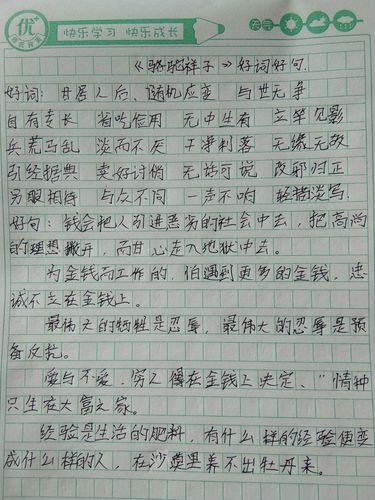 优+
快乐学习 快乐成长
天气
《骆驼祥子》好词好句
好词：甘居人后、随机应变 与世无争
自有专长 省吃俭用 无中生有 立竿见影
兵荒马乱 淡而不厌 干净利落 无缘无故
引经据典 卖好讨俏 无话可说 改邪归正
另眼相待 与众不同 一声不响 轻描淡写
好句：钱会把人引进恶劣的社会中去，把高尚
的理想撇开，而甘心走入地狱中去。
为金钱而工作的，怕遇到更多的金钱，忠
诚不立在金钱上。
最伟大的牺牲是忍辱，最伟大的忍辱是预
备反抗。
爱与不爱，穷人得在金钱上决定，“情种
只生在大富之家。
经验是生活的肥料，有什么样的经验便变
成什么样的人，在沙漠里养不出牡丹来。